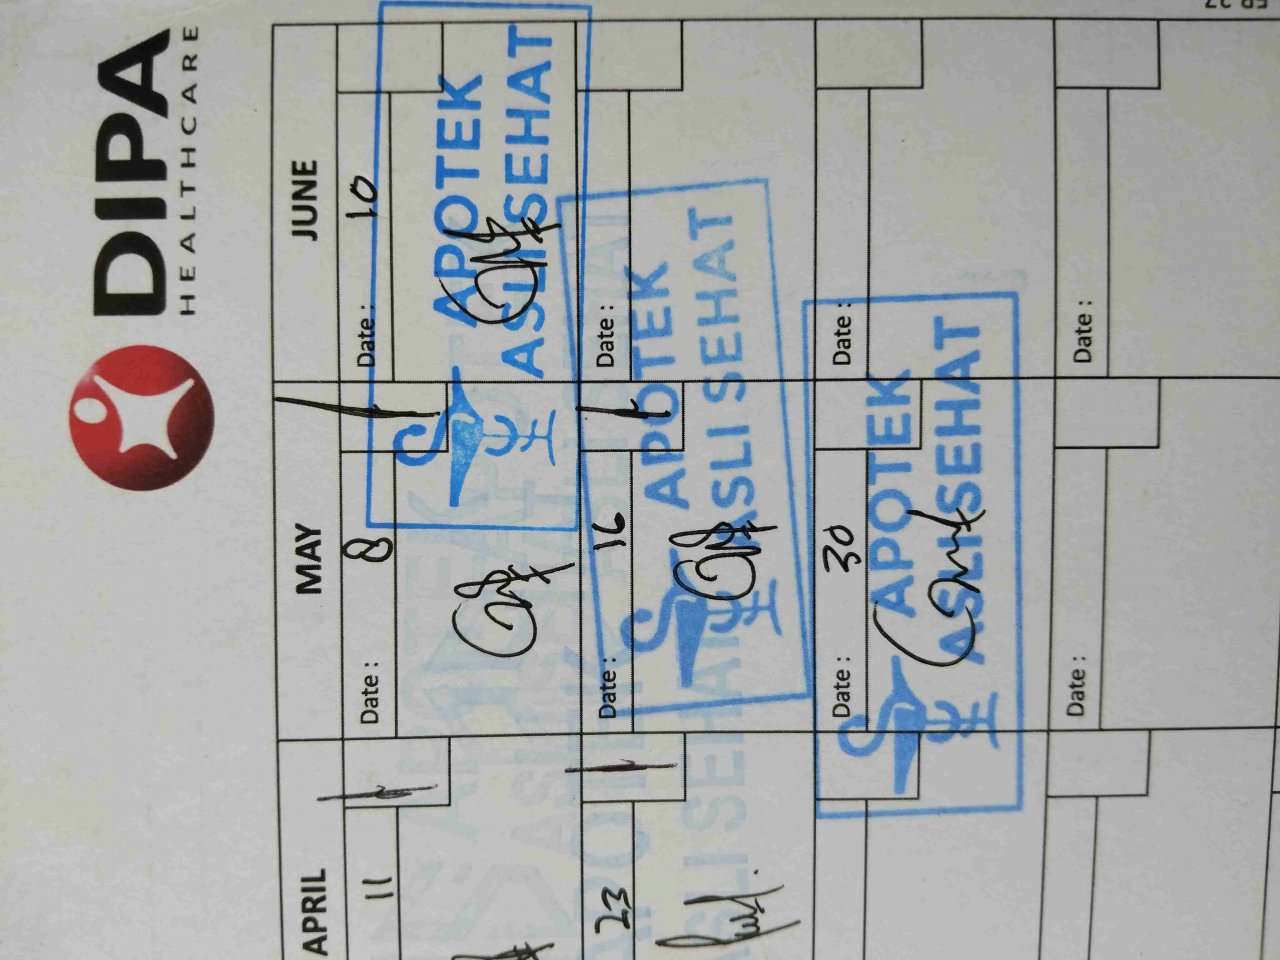 DIPA
HEALTHCARE
APRIL
MAY
JUNE
11
Date : 8
Date : 10
APOTEK
ASLI SEHAT
23
Date : 16
Date :
APOTEK
ASLI SEHAT
ASLI SEHAT
Date : 30
Date :
APOTEK
ASLI SEHAT
Date :
Date :